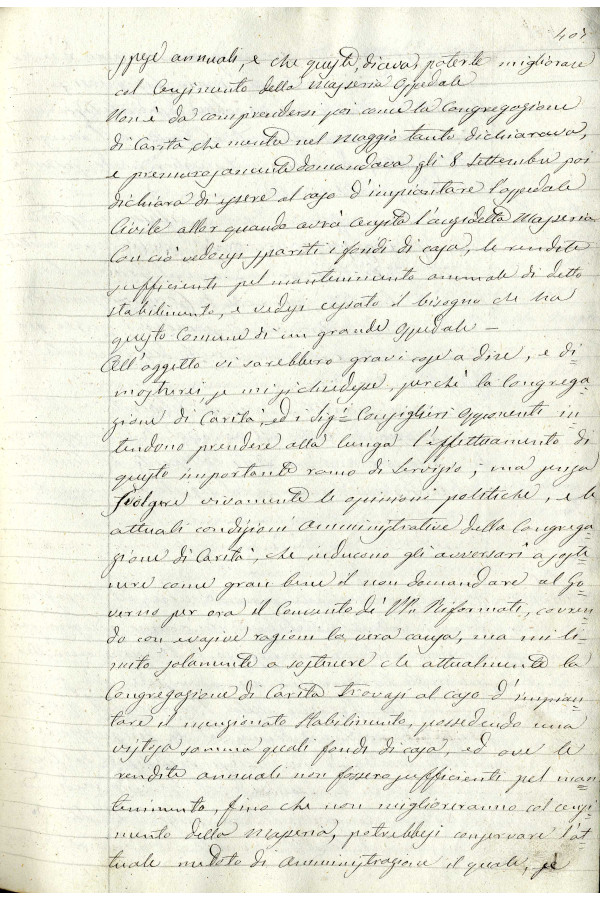 407
spese annuali, e che queste, diceva, poterle migliorare
col Censimento della Masseria Ospedale
Non è da comprendersi poi come la Congregazione
di Carità che mentre nel Maggio tanto dichiarava,
e premurosamente domandava gli 8 Settembre poi
dichiara di essere al caso d'impiantare l'ospedale
Civile allor quando avrà censita l'anzidetta Masseria
Con ciò vedonsi spariti i fondi di casa, le rendite
sufficienti pel mantenimento annuale di detto
stabilimento, e vedesi cessato il bisogno che ha
questo Comune di un grande Ospedale –
All'oggetto vi sarebbero gravi cose a dire, e di=
mostrerei se mi si chiedesse, perchè la Congrega=
zione di Carità, ed i Sig.i Consiglieri opponenti in=
tendono prendere alla lunga l'effettuamento di
questo importante ramo di servizio; ma senza
svolgere vivamente le opinioni politiche, e le
attuali condizioni amministrative della Congrega=
zione di Carità, che inducono gli avversari a soste=
nere come gran bene il non domandare al Go=
verno per ora il Convento de' PP. Riformati, covren=
do con evasive ragioni la vera causa, ma mi li=
mito solamente a sostenere che attualmente la
Congregazione di Carità trovasi al caso d'impian=
tare il menzionato Stabilimento, possedendo una
vistosa somma quali fondi di casa, ed ove le
rendite annuali non fossero sufficienti pel man=
tenimento, fino che non miglioreranno col censi=
mento della Masseria, potrebbesi conservare l'at=
tuale metodo di Amministrazione il quale, se